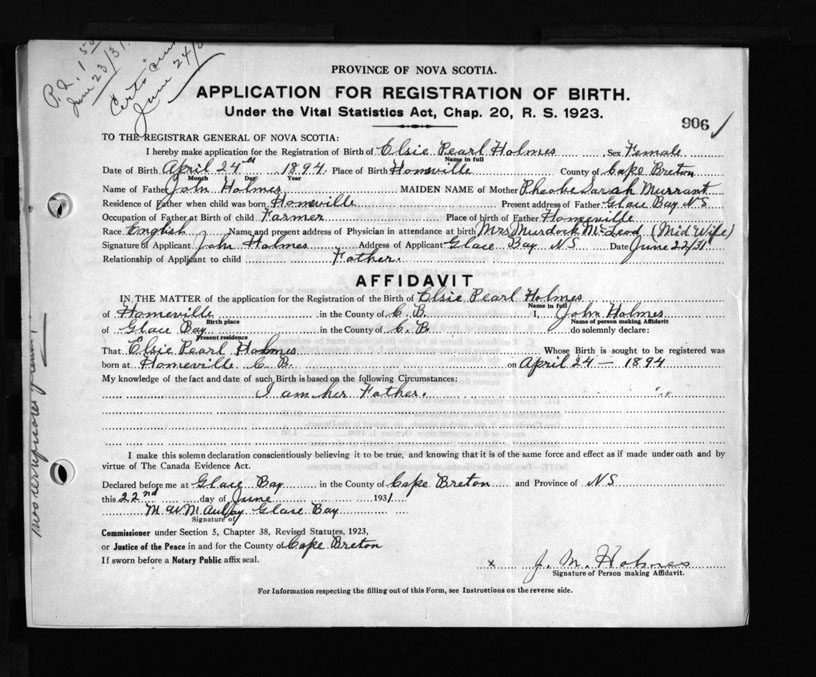 P.d. 1.50
June 23/31
Certs
June 24/
PROVINCE OF NOVA SCOTIA.
APPLICATION FOR REGISTRATION OF BIRTH.
Under the Vital Statistics Act, Chap. 20, R. S. 1923.
906
TO THE REGISTRAR GENERAL OF NOVA SCOTIA:
I hereby make application for the Registration of Birth of Elsie Pearl Holmes, Sex Female
Name in full
Date of Birth April 24th 1894 Place of Birth Homeville County of Cape Breton
Month Day Year
Name of Father John Holmes MAIDEN NAME of Mother Phoebe Sarah Murrant
Residence of Father when child was born Homeville Present address of Father Glace Bay NS
Occupation of Father at Birth of child Farmer Place of birth of Father Homeville
Race English Name and present address of Physician in attendance at birth Mrs Murdock McLeod (Mid Wife)
Signature of Applicant John Holmes Address of Applicant Glace Bay NS Date June 22/31
Relationship of Applicant to child Father.
AFFIDAVIT
IN THE MATTER of the application for the Registration of the Birth of Elsie Pearl Holmes
Name in full
of Homeville in the County of C.B. I, John Holmes
Birth place Name of person making Affidavit
of Glace Bay in the County of C.B. do solemnly declare:
Present residence
That Elsie Pearl Holmes Whose Birth is sought to be registered was
born at Homeville C.B. on April 24 — 1894
My knowledge of the fact and date of such Birth is based on the following Circumstances:
I am her Father.
I make this solemn declaration conscientiously believing it to be true, and knowing that it is of the same force and effect as if made under oath and by
virtue of The Canada Evidence Act.
Declared before me at Glace Bay in the County of Cape Breton and Province of NS
this 22nd day of June 1931
Glace Bay
Signature of
Commissioner under Section 5, Chapter 38, Revised Statutes, 1923,
or Justice of the Peace in and for the County of Cape Breton
If sworn before a Notary Public affix seal.
x J. M. Holmes
Signature of Person making Affidavit.
For Information respecting the filling out of this Form, see Instructions on the reverse side.